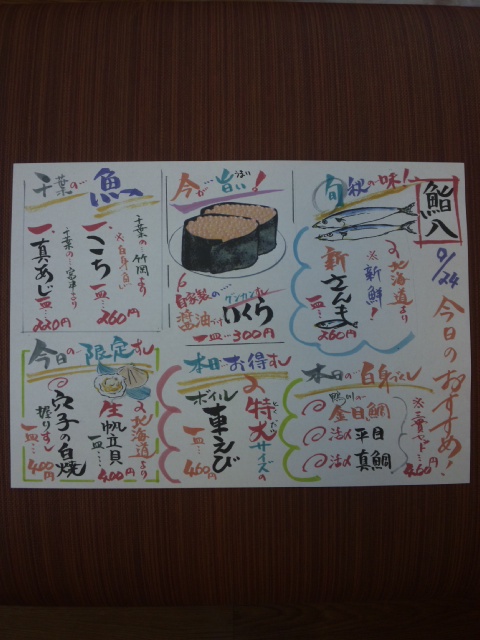 鮨八
9/24
今日のおすすめ!
旬 秋の味!
北海道より
※新鮮!
新さんま
一皿…260円
今が旨い!
うまい
自家製の…
グンカンすし
醤油づけ
いくら
一皿…300円
千葉の…魚
千葉の…竹岡より
※白身魚い
一、こち
一皿…260円
千葉の…富津より
一、真あじ
一皿…220円
本日の白身づくし
※三貫セット…460円
鴨川の…
金目鯛
活〆平目
活〆真鯛
本日お得すし
特大サイズの
とくだい
ボイル車えび
一皿…400円
今日の限定すし
北海道より
生帆立貝
一皿…400円
穴子の白焼
握りずし
一皿…400円